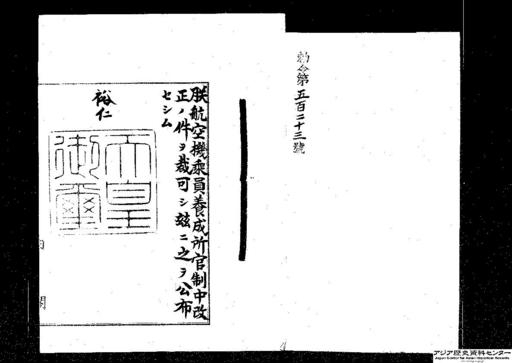 勅令第五百二十三號
朕航空機乘員養成所官制中改
正ノ件ヲ裁可シ玆ニ之ヲ公布
セシム
裕仁
天皇御璽
内閣
アジア歴史資料センター
Japan Center for Asian Historical Records